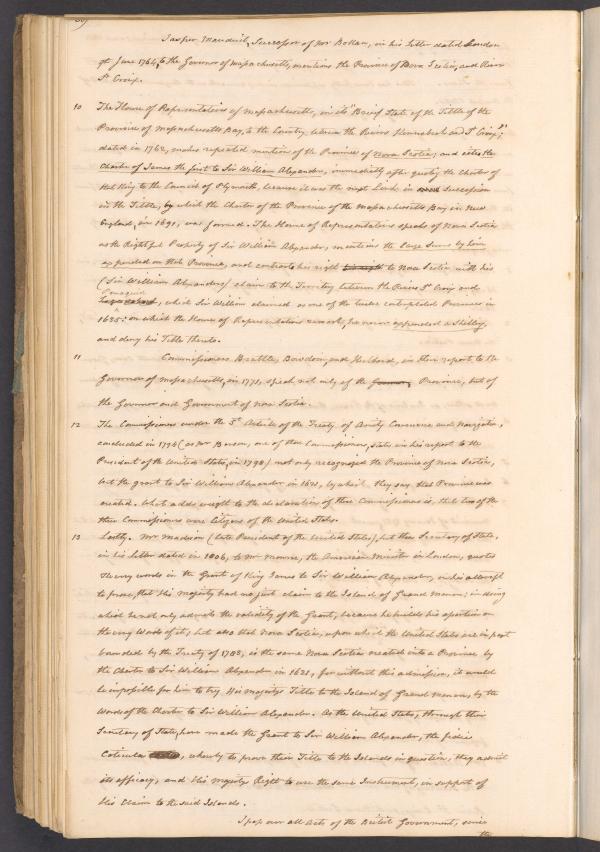 Jasper Mauduit, Successor of Mr Bollan, in his Letter dated London
9th June 1764, to the Governor of Massachusetts, mentions the Province of Nova Scotia, and River
St Croix.
10 The House of Representatives of Massachusetts, in its "Brief State of the Title of the
Province of Massachusetts Bay, to the Country between the Rivers Kennebeck and St Croix;"
dated in 1762, makes repeated mention of the Province of Nova Scotia; and cites the
Charter of James the first to Sir William Alexander, immediately after quoting the Charter of
that King to the Council of Plymouth, because it was the next Link in Succession
in the Title, by which the Charter of the Province of the Massachusetts Bay in New
England, in 1691, was formed. The House of Representatives speaks of Nova Scotia
as the Rightful Property of Sir William Alexander, mentions the large Sums by him
expended on that Province, and contrasts his right to Nova Scotia with his
(Sir William Alexanders) claim to the Territory between the Rivers St Croix and
, which Sir William claimed as one of the twelve contemplated Provinces in
1635: on which the House of Representatives remark, he never expended a Shilling,
and deny his Title thereto.
11 Commissioners Brattle, Bowdoin, and Hubbard, in their report to the
Governor of Massachusetts, in 1771, speak not only of the Province, but of
the Governor and Government of Nova Scotia.
12 The Commissioners under the 5th Article of the Treaty of Amity Commerce and Navigation,
concluded in 1794 (as Mr Benson, one of these Commissioners, states in his report to the
President of the United States, in 1798) not only recognized the Province of Nova Scotia,
but the grant to Sir William Alexander in 1621, by which they say that Province was
created. What adds weight to the declaration of these Commissioners is, that two of the
three Commissioners were Citizens of the United States.
13 Lastly. Mr Madison (late President of the United States), but then Secretary of State,
in his letter dated in 1806, to Mr Monroe, the American Minister in London, quotes
the very words in the Grant of King James to Sir William Alexander, in his attempt
to prove, that His Majesty had no just claim to the Island of Grand Menan; in doing
which he not only admits the validity of the Grant, because he builds his assertion on
the very Words of it, but also that Nova Scotia, upon which the United States are in part
bounded by the Treaty of 1783, is the same Nova Scotia created into a Province by
the Charter to Sir William Alexander in 1621, for without this admission, it would
be impossible for him to try His Majestys Title to the Island of Grand Menan, by the
Words of the Charter to Sir William Alexander. As the United States, through their
Secretary of State, have made the Grant to Sir William Alexander, the
, whereby to prove their Title to the Islands in question, they admit
its efficacy, and His Majestys Right to use the same Instrument, in support of
His Claim to the said Islands.
I pass over all Acts of the British Government, since
the